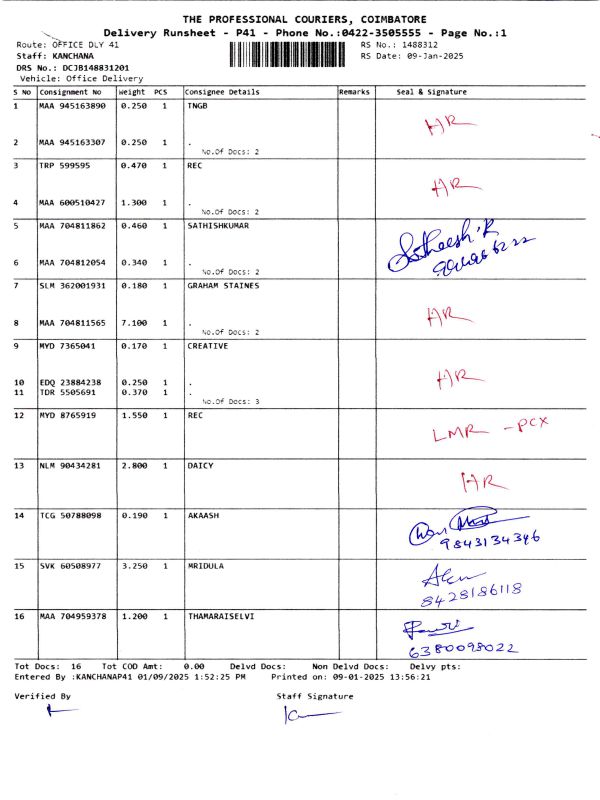 THE PROFESSIONAL COURIERS, COIMBATORE
Delivery Runsheet - P41 - Phone No.:0422-3505555 - Page No.:1
Route: OFFICE DLY 41 RS No.: 1488312
Staff: KANCHANA RS Date: 09-Jan-2025
DRS No.: DCJB148831201
Vehicle: Office Delivery
S No Consignment No Weight PCS Consignee Details Remarks Seal & Signature
1 MAA 945163890 0.250 1 TNGB
HR
2 MAA 945163307 0.250 1 .
No.Of Docs: 2
3 TRP 599595 0.470 1 REC
HR
4 MAA 600510427 1.300 1 .
No.Of Docs: 2
5 MAA 704811862 0.460 1 SATHISHKUMAR
Satheesh.R
6 MAA 704812054 0.340 1 .
No.Of Docs: 2
7 SLM 362001931 0.180 1 GRAHAM STAINES
HR
8 MAA 704811565 7.100 1 .
No.Of Docs: 2
9 MYD 7365041 0.170 1 CREATIVE
HR
10 EDQ 23884238 0.250 1 .
11 TDR 5505691 0.370 1 .
No.Of Docs: 3
12 MYD 8765919 1.550 1 REC
LMR - PCX
13 NLM 90434281 2.800 1 DAICY
HR
14 TCG 50788098 0.190 1 AKAASH
9843134346
15 SVK 60508977 3.250 1 MRIDULA
8428186118
16 MAA 704959378 1.200 1 THAMARAISELVI
6380098022
Tot Docs: 16 Tot COD Amt: 0.00 Delvd Docs: Non Delvd Docs: Delvy pts:
Entered By :KANCHANAP41 01/09/2025 1:52:25 PM Printed on: 09-01-2025 13:56:21
Verified By Staff Signature